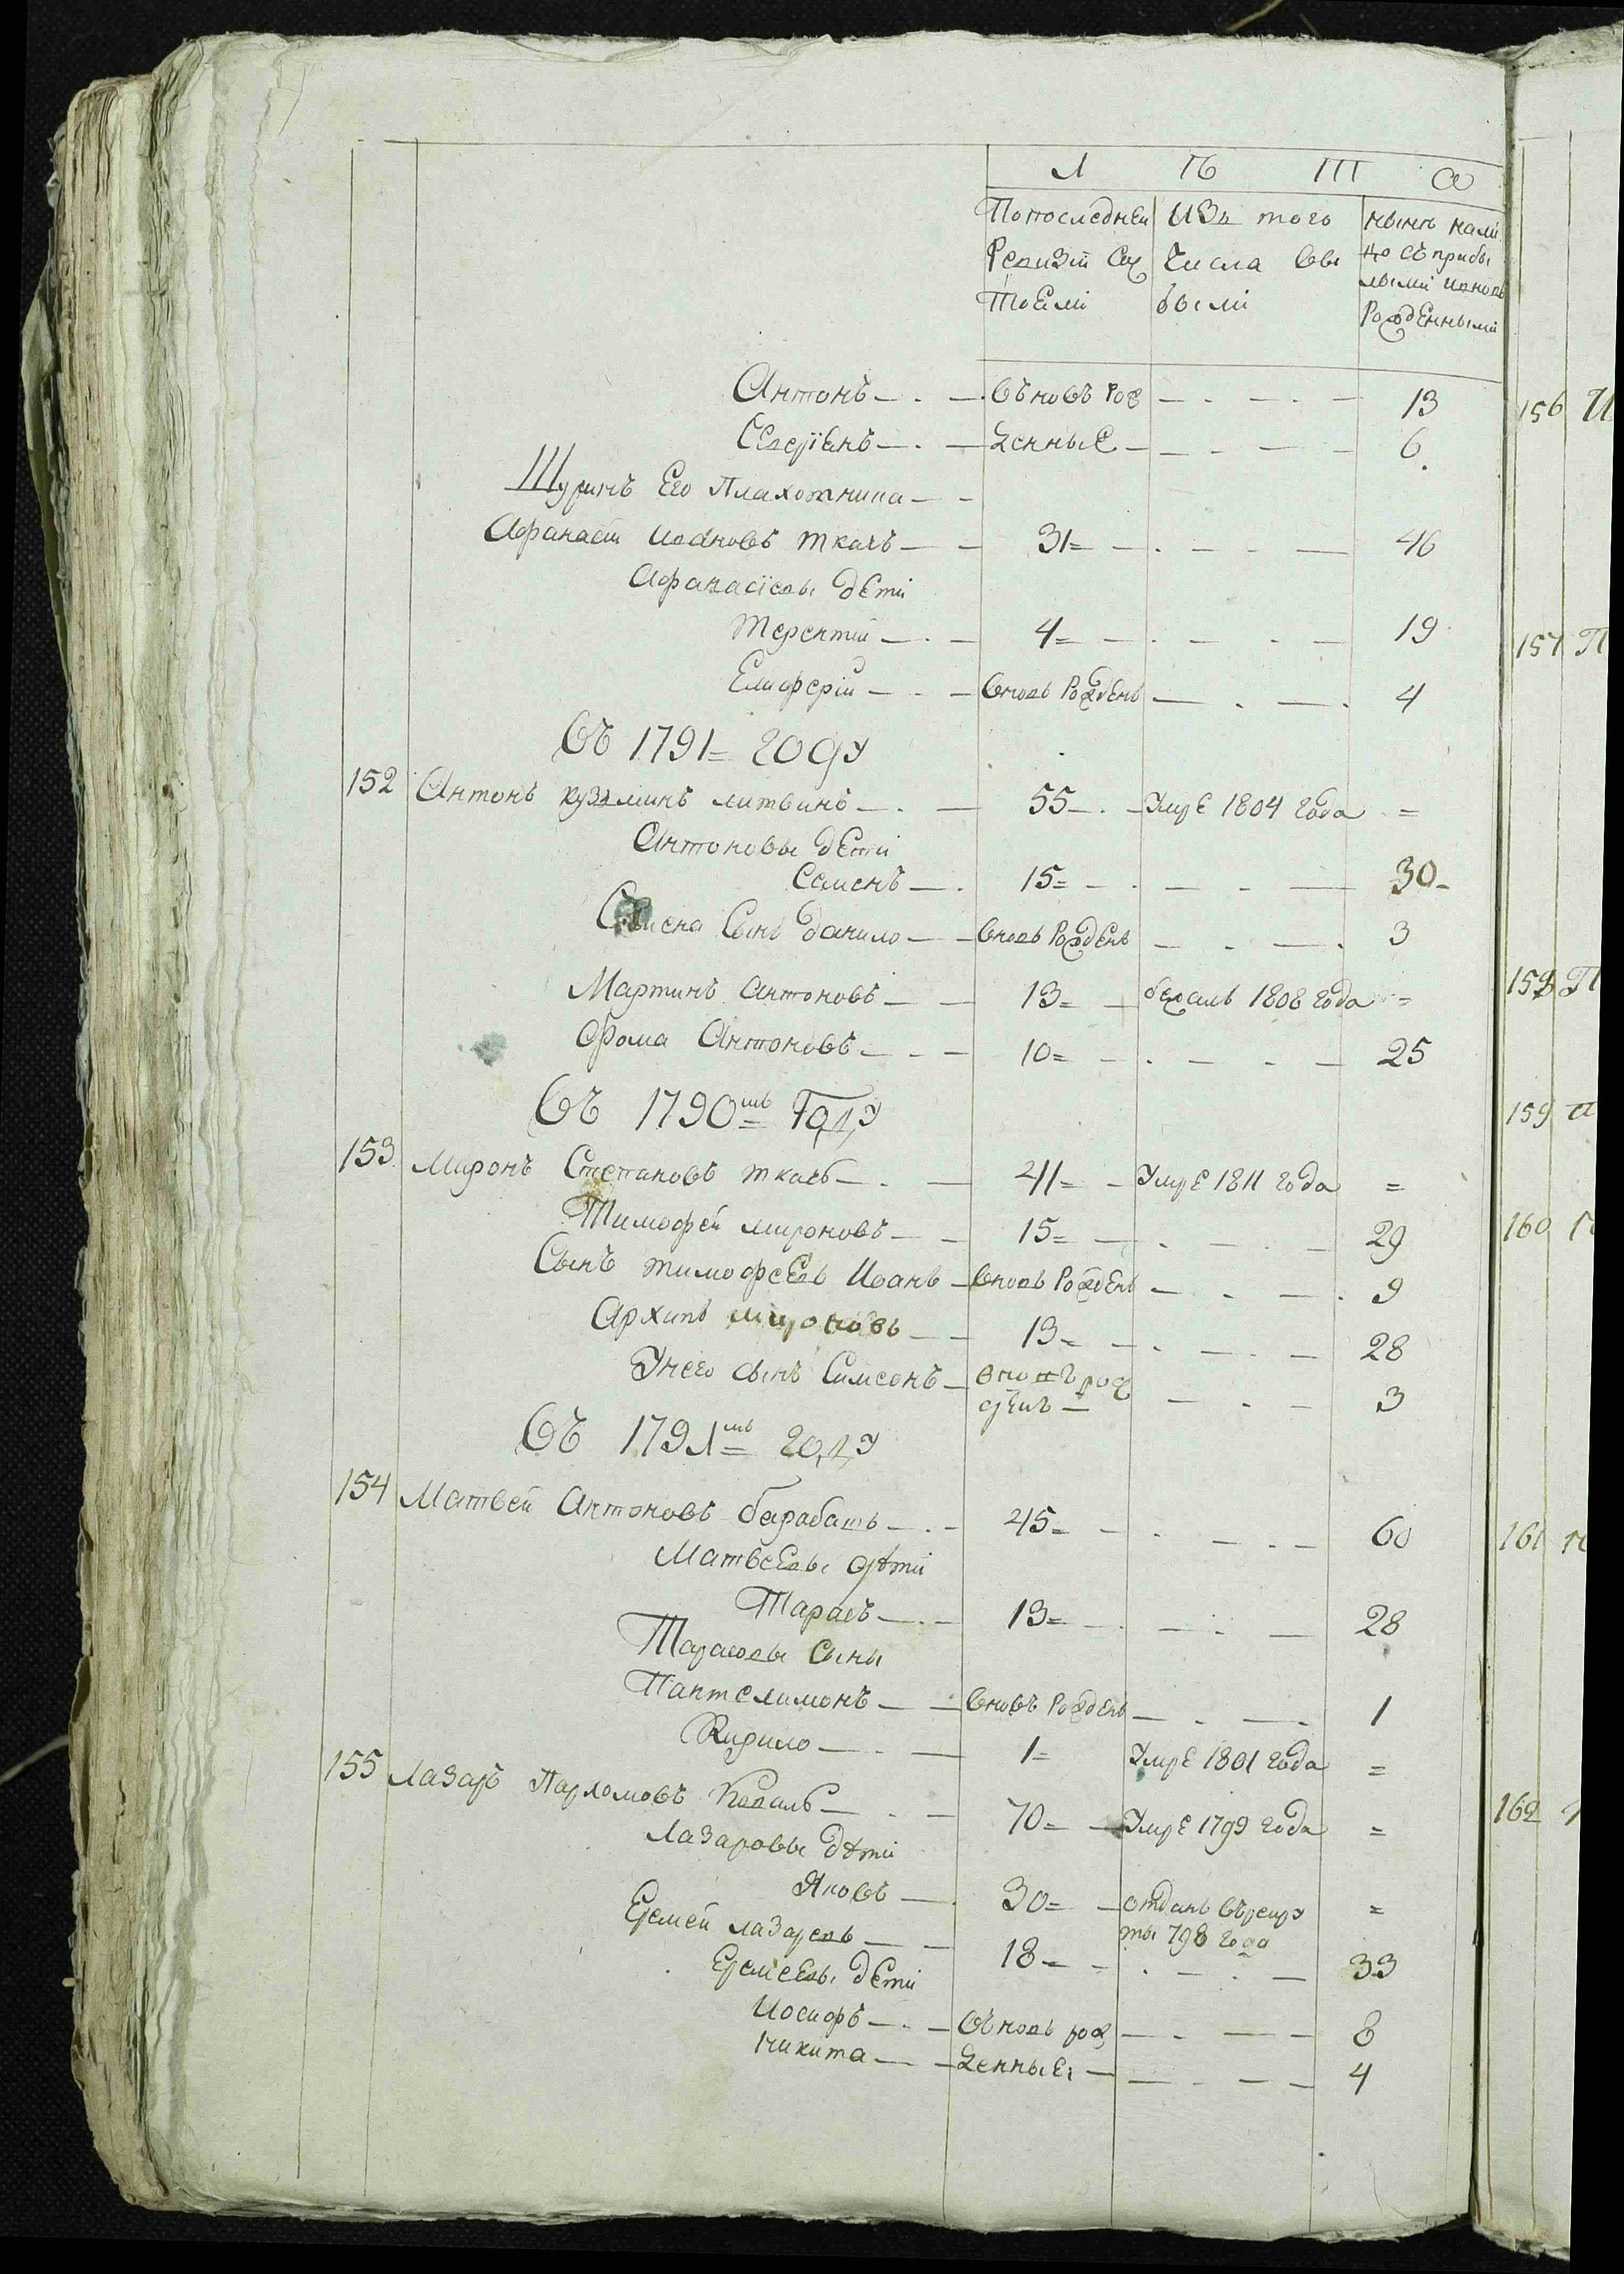 Л Ѣ Т А
По последней Изъ того нынѣ нали
Ревизіи Сос числа Выб цо съ прибы
Тоеми были лыми ивновь
Рожденными
Антонъ — Въновъ Рож — 13
Северіянъ — денные — 6
Шуринъ Его Плахотника
Афанасій Ивановъ ткачъ — 31 = — 46
Афанасіевы дѣти
Терентій — 4 = — 19
Елиферій — Вновь Рожденъ — 4
Въ 1791 = году
152 Антонъ кузминъ литвинъ — 55 — Умре 1804 года =
Антоновы дети
Семенъ — 15 = — 30
Семена Сынъ данило — Вновь Рожденъ — 3
Мартинъ антоновъ — 13 = — бежалъ 1808 года =
Фома Антоновъ — 10 = — 25
Въ 1790мъ Году
153 Миронъ Степановъ ткачъ — 41 = — Умре 1811 года =
Тимофей мироновъ — 15 = — 29
Сынъ тимофеевъ Иванъ — Вновь Рожденъ — 9
Архипъ мироновъ — 13 = — 28
Унего сынъ Симеонъ — вновъ рож
денъ — 3
Въ 1791мъ году
154 Матвей Антоновъ барабашъ — 45 = — 60
Матвеевы дѣти
Тарасъ — 13 = — 28
Тарасовы сыны
Пантелимонъ — Вновъ Рожденъ — 1
Кирило — 1 = Умре 1801 года =
155 Лазаръ Пархомовъ Коваль — 70 = — Умре 1799 года =
Лазаровы дѣти
Яковъ — 30 = — отданъ върекру
ты 798 года =
Еремей лазаревъ — 18 = — 33
Еремеевы дети
Иосифъ — Въновь рож — 8
никита — денные — 4
156 И
157 П
158 П
159
160
161
162